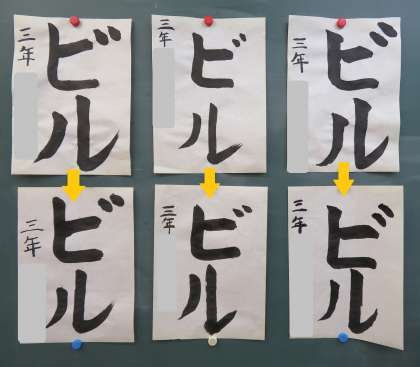 ビル
三年
ビル
三年
ビル
三年
ビル
三年
ビル
三年
ビル
三年